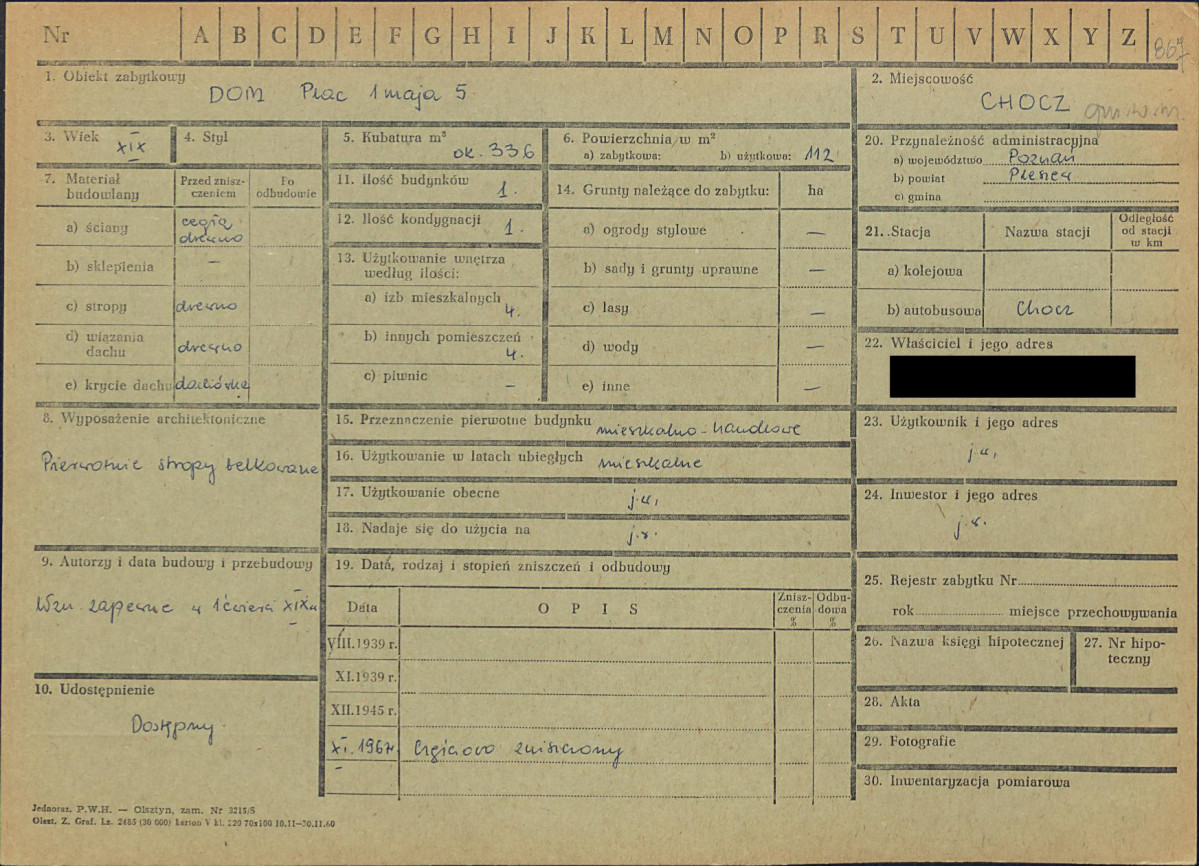 Nr A B C D E F G H I J K L M N O P R S T U V W X Y Z 867
1. Obiekt zabytkowy
DOM Plac 1 maja 5
2. Miejscowość
CHOCZ
3. Wiek
XIX
4. Styl
5. Kubatura m³
ok. 336
6. Powierzchnia w m²
a) zabytkowa: b) użytkowa: 112
20. Przynależność administracyjna
a) województwo Poznań
b) powiat Pleszew
c) gmina
7. Materiał budowlany
Przed znisz-
czeniem
Po
odbudowie
a) ściany cegła
drewno
b) sklepienia —
c) stropy drewno
d) wiązania
dachu drewno
e) krycie dachu dachówka
11. Ilość budynków
1.
12. Ilość kondygnacji
1.
13. Użytkowanie wnętrza
według ilości:
a) izb mieszkalnych
4.
b) innych pomieszczeń
4.
c) piwnic —
14. Grunty należące do zabytku: ha
a) ogrody stylowe —
b) sady i grunty uprawne —
c) lasy —
d) wody —
e) inne —
21. Stacja Nazwa stacji
Odległość
od stacji
w km
a) kolejowa
b) autobusowa Chocz
22. Właściciel i jego adres
8. Wyposażenie architektoniczne
Pierwotnie stropy belkowane
15. Przeznaczenie pierwotne budynku mieszkalno-handlowe
16. Użytkowanie w latach ubiegłych mieszkalne
17. Użytkowanie obecne j.w.
18. Nadaje się do użycia na j.w.
23. Użytkownik i jego adres
j.w.
24. Inwestor i jego adres
j.w.
9. Autorzy i data budowy i przebudowy
Wzn. zapewne w 1 ćwierci XIX w
10. Udostępnienie
Dostępny.
19. Data, rodzaj i stopień zniszczeń i odbudowy
Data OPIS
Znisz-
czenia
%
Odbu-
dowa
%
VIII.1939 r.
XI.1939 r.
XII.1945 r.
XI.1967r. Częściowo zniszczony
25. Rejestr zabytku Nr
rok miejsce przechowywania
26. Nazwa księgi hipotecznej
27. Nr hipo-
teczny
28. Akta
29. Fotografie
30. Inwentaryzacja pomiarowa
Jednoraz. P.W.H. — Olsztyn, zam. Nr 3215/S
Olszt. Z. Graf. Lz. 2485 (30 000) karton V kl. 220 70x100 10.11—30.11.60